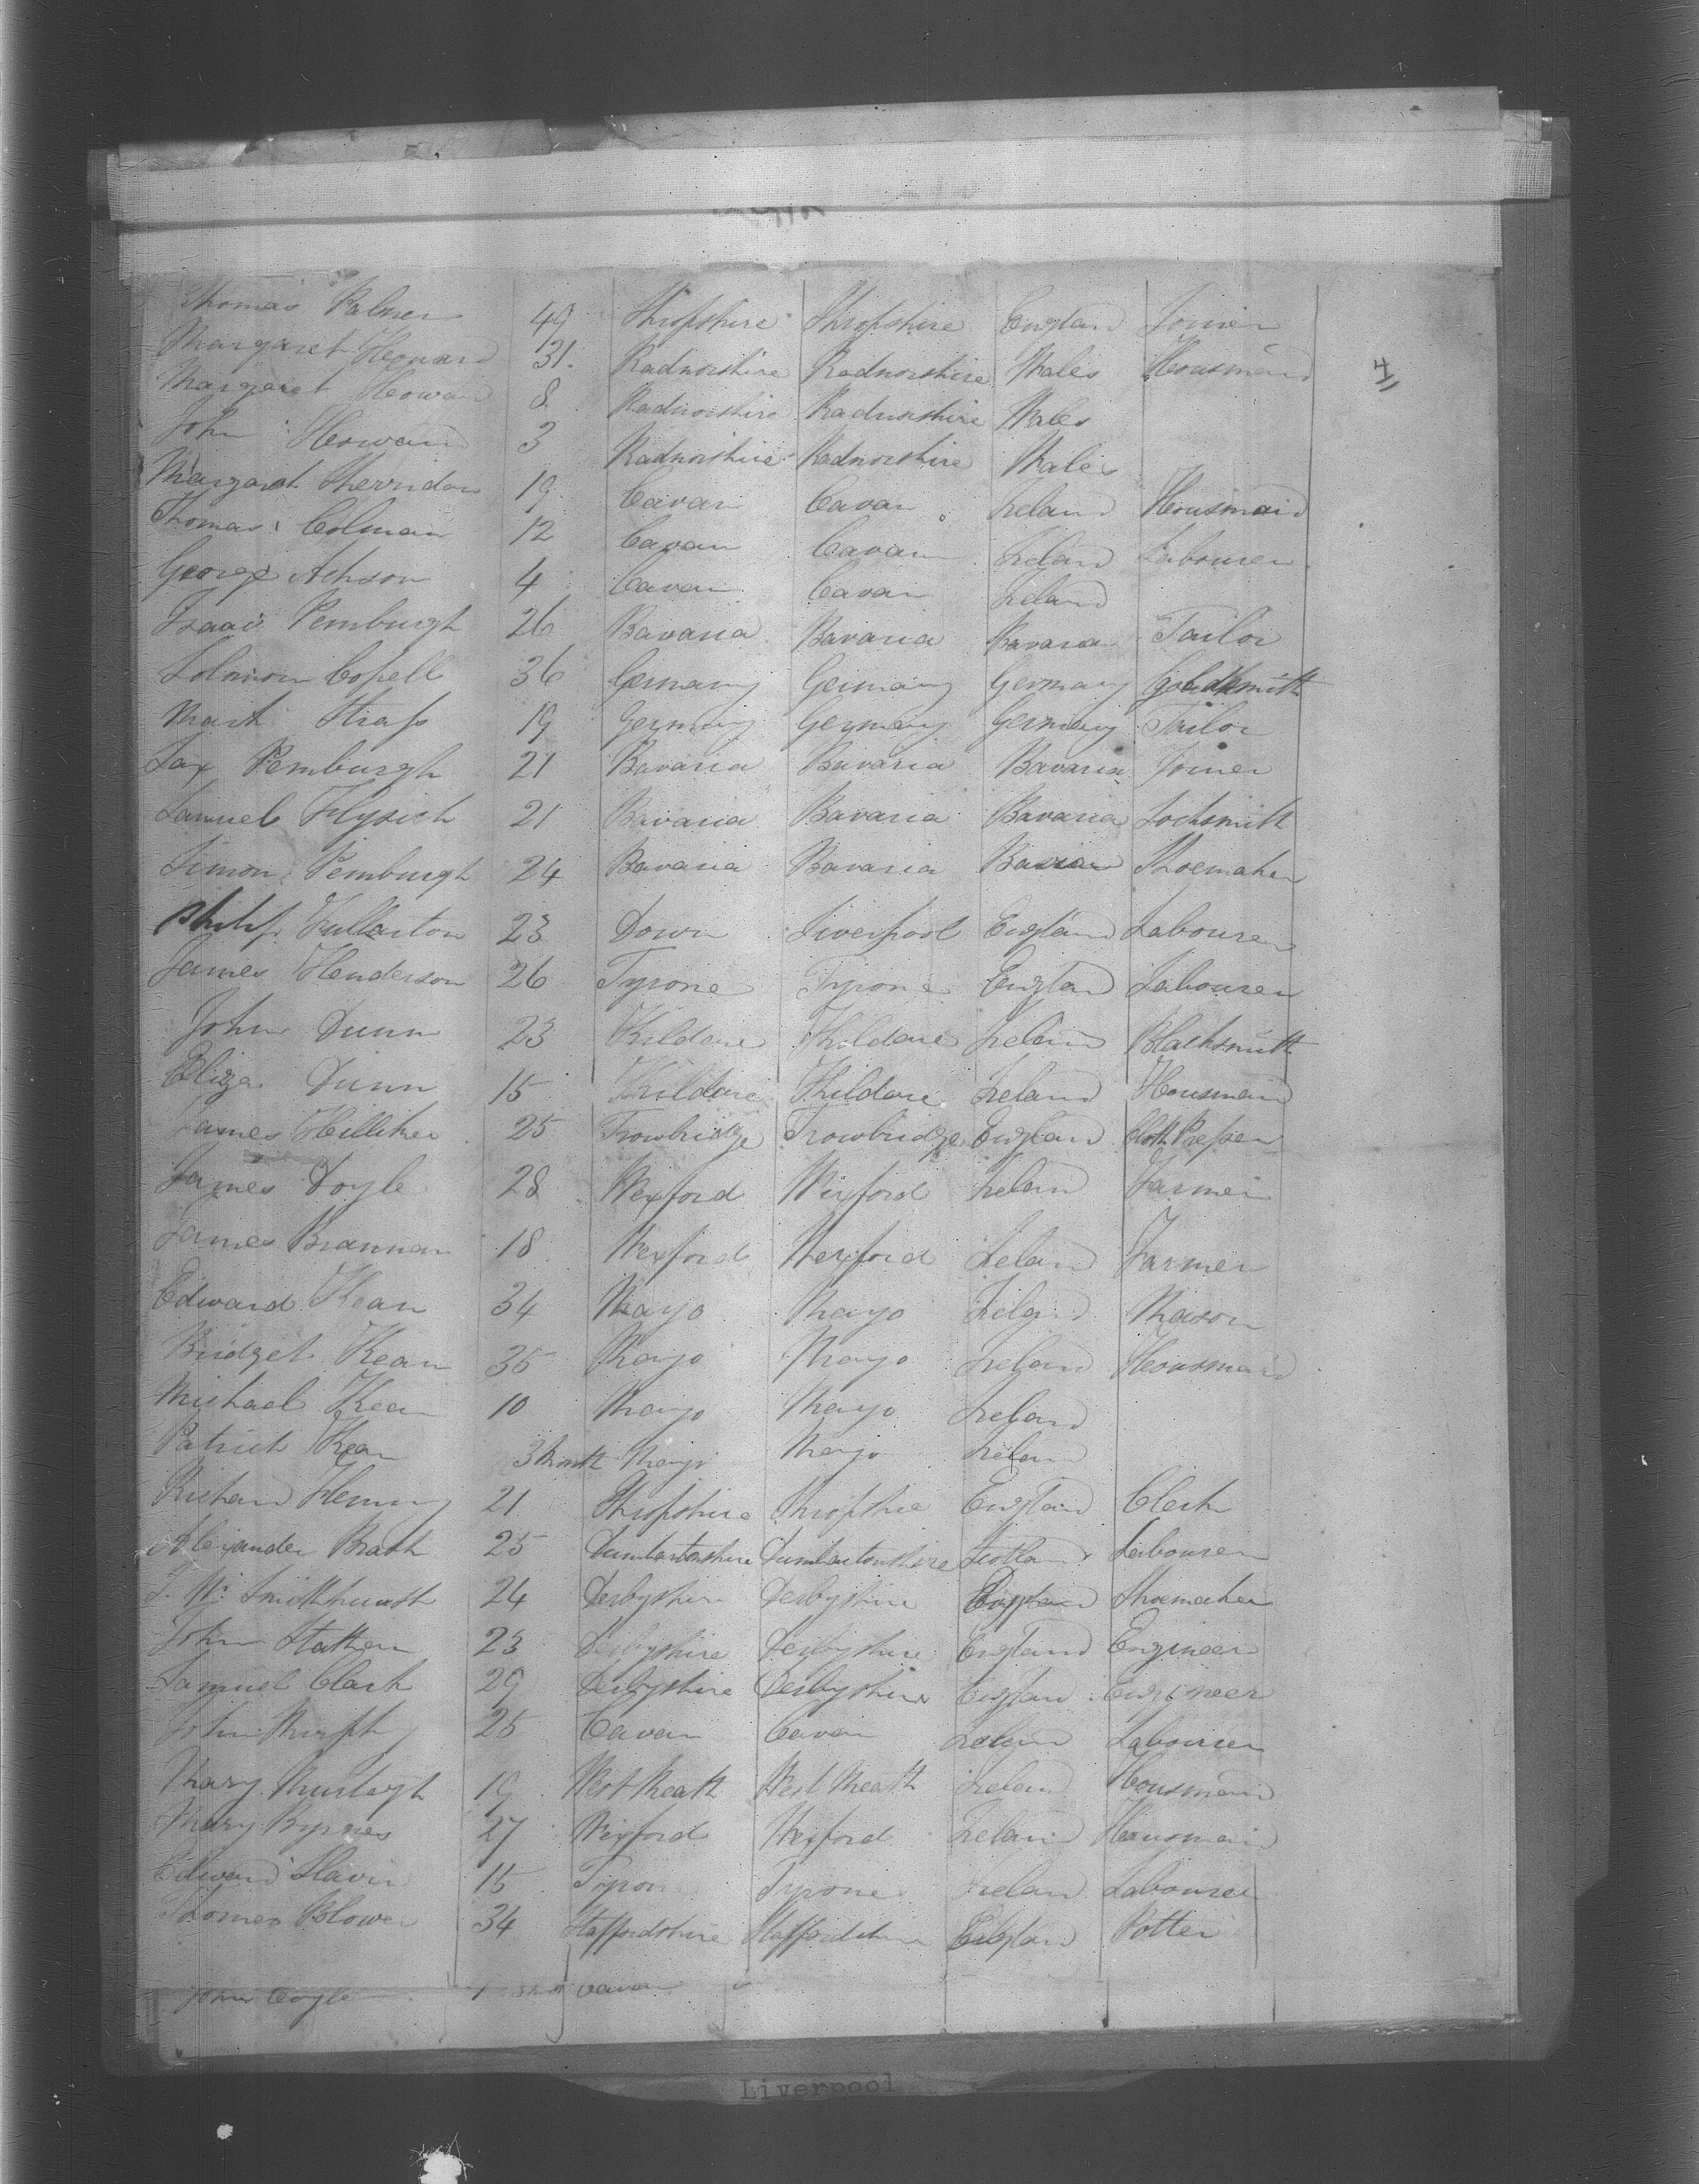 Thomas Palmer 49 Shropshire Shropshire England Joiner
Margaret Howard 31 Radnorshire Radnorshire Wales Housmaid
Margaret Howard 8 Radnorshire Radnorshire Wales
John Howard 3 Radnorshire Radnorshire Wales
Margaret Sherridan 19 Cavan Cavan Ireland Housmaid
Thomas Colman 12 Cavan Cavan Ireland Labourer
George Achson 4 Cavan Cavan Ireland
Isaac Pemburgh 26 Bavaria Bavaria Bavaria Tailor
Solomon Copell 36 Germany Germany Germany Goldsmith
Mark Strass 19 Germany Germany Germany Tailor
Sax Pemburgh 21 Bavaria Bavaria Bavaria Joiner
Samuel 21 Bavaria Bavaria Bavaria Locksmith
Simon Pemburgh 24 Bavaria Bavaria Bavaria Shoemaker
Philip Fullarton 23 Down Liverpool England Labourer
James Henderson 26 Tyrone Tyrone England Labourer
John Dunn 23 Kildare Kildare Ireland Blacksmith
Eliza Dunn 15 Kildare Kildare Ireland Housmaid
James Hilliker 25 Trowbridge Trowbridge England Cloth Presser
James Doyle 28 Wexford Wexford Ireland Farmer
James Brannan 18 Wexford Wexford Ireland Farmer
Edward Kean 34 Mayo Mayo Ireland Mason
Bridget Kean 35 Mayo Mayo Ireland Housmaid
Michael Kean 10 Mayo Mayo Ireland
Patrick Kean 3 Month Mayo Mayo Ireland
Richard Fleming 21 Shropshire Shropshire England Clerk
Alexander Brash 25 Dumbartonshire Dumbartonshire Scotland Labourer
J. W. Smithhurst 24 Derbyshire Derbyshire England Shoemaker
John Statham 23 Derbyshire Derbyshire England Engineer
Samuel Clark 29 Derbyshire Derbyshire England Engineer
John Murphy 25 Cavan Cavan Ireland Labourer
Mary Murtagh 19 West Meath West Meath Ireland Housmaid
Mary Byrnes 27 Wexford Wexford Ireland Housmaid
Edward Slavin 15 Tyrone Tyrone Ireland Labourer
Thomas Blower 34 Staffordshire Staffordshire England Potter
John Coyle 1 Cavan
Liverpool